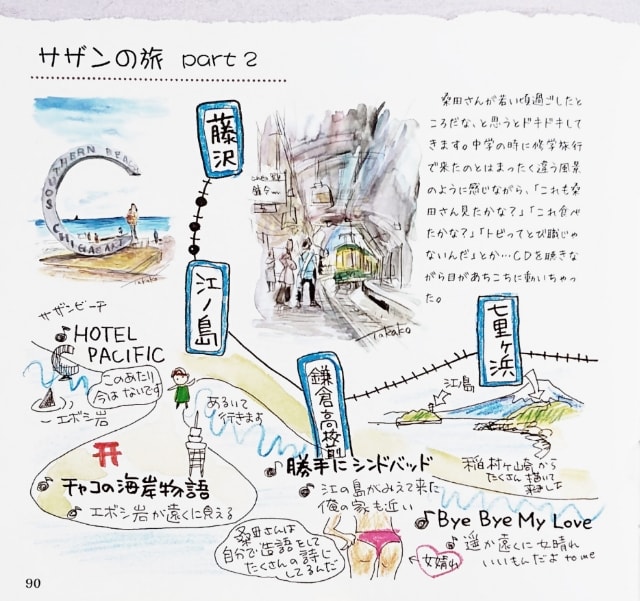 サザンの旅 part 2
SOUTHERN BEACH
CHIGASAKI
Takako
藤沢
Takako
桑田さんが若い頃過ごしたと
ころだな、と思うとドキドキして
きます。中学の時に修学旅行
で来たのとはまったく違う風景
のように感じながら、「これも桑
田さん見たかな?」「これ食べ
たかな?」「トビってとび職じゃ
ないんだ」とか…CDを聴きな
がら目があちこちに動いちゃっ
た。
江ノ島
七里ヶ浜
鎌倉高校前
サザンビーチ
HOTEL
PACIFIC
このあたり
今はないです
エボシ岩
あるいて
行きます
江ノ島
稲村ヶ崎から
たくさん描いて
来ました
チャコの海岸物語
エボシ岩が遠くに見える
勝手にシンドバッド
江の島がみえて来た
俺の家も近い
桑田さんは
自分で造語をして
たくさんの詩に
してるんだ
Bye Bye My Love
遥か遠くに女晴れ
いいもんだよ to me
女晴れ
90